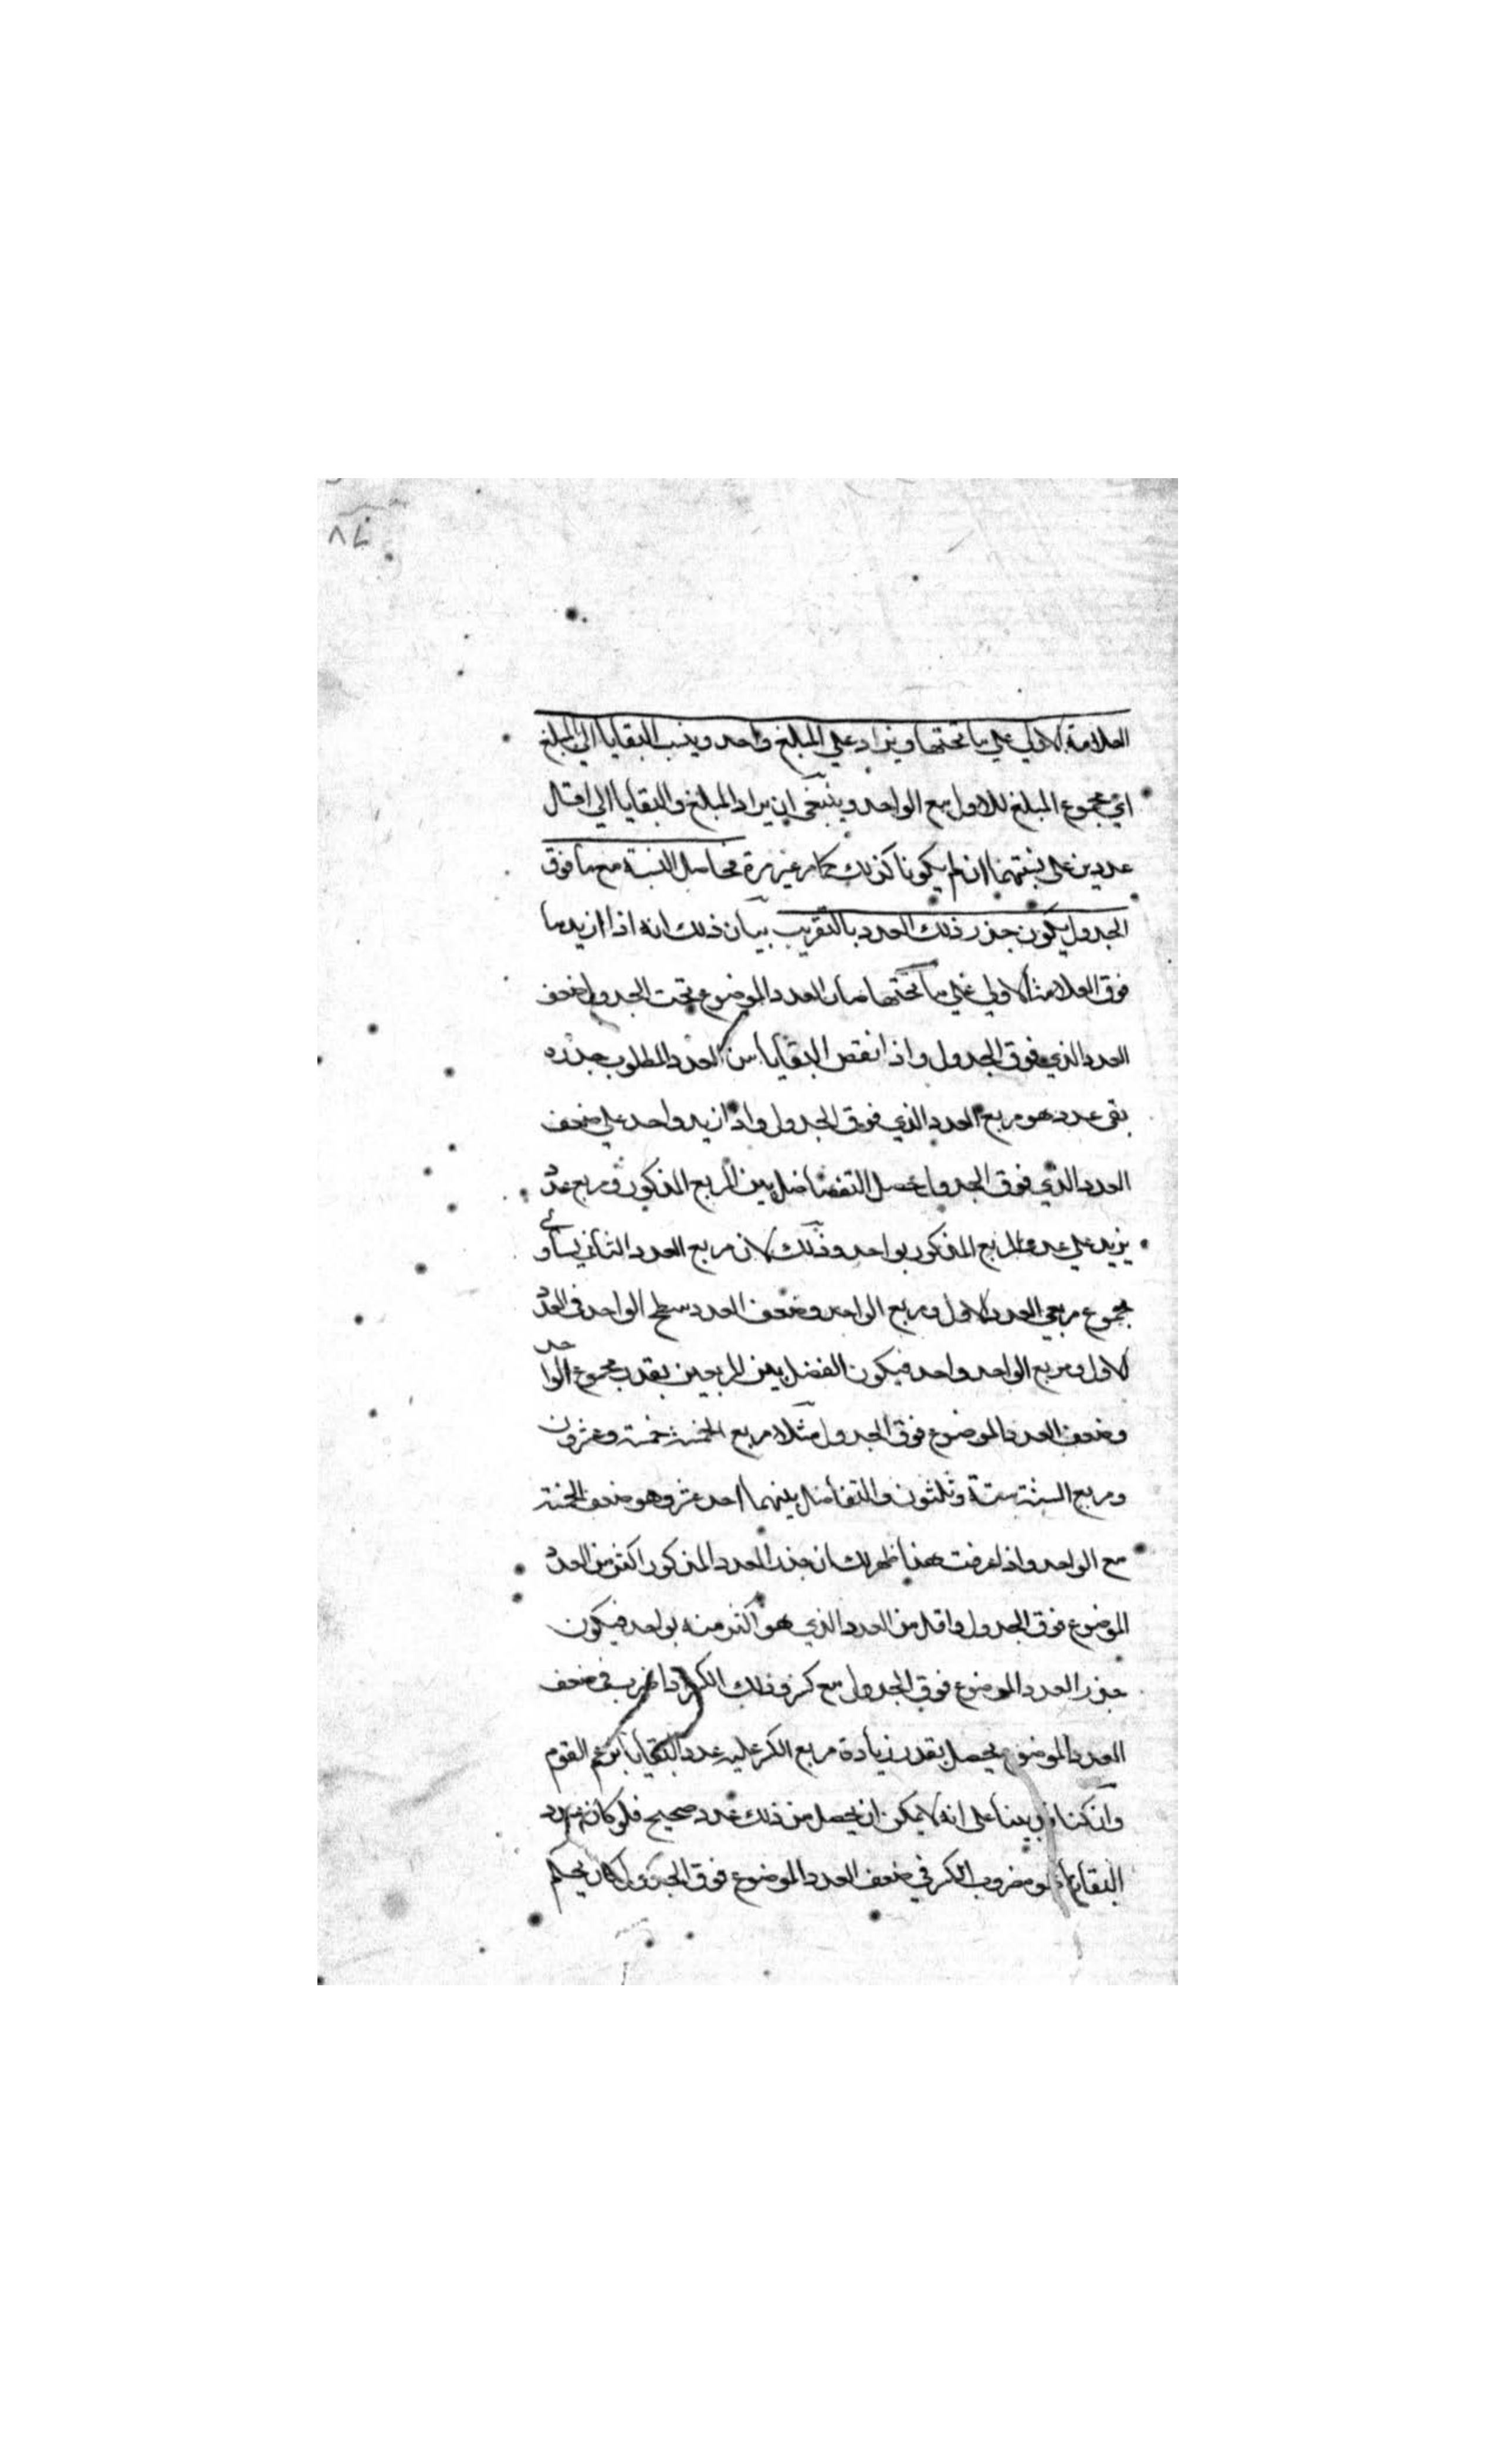 العلامة الاولي علي ما تحتها ويزاد علي المبلغ واحد وينسب البقايا الي المبلغ
اي مجموع المبلغ للاول مع الواحد وينبغي ان يراد المبلغ والبقايا الي اقل
عددين علي نسبتهما ان لم يكونا كذلك كما مر غير مرة فحاصل النسبة مع ما فوق
الجدول يكون جذر ذلك العدد بالتقريب بيان ذلك انه اذا ازيد ما
فوق العلامة الاولي علي ما تحتها صار العدد الموضوع تحت الجدول ضعف
العدد الذي فوق الجدول واذا انقص البقايا من العدد المطلوب جذره
بقي عدد هو مربع العدد الذي فوق الجدول واذا ازيد واحد علي ضعف
العدد الذي فوق الجدول حصل التفاضل بين المربع المذكور ومربع عدد
يزيد علي عدد المربع المذكور بواحد وذلك لان مربع العدد الثاني يساوي
مجموع مربعي العدد الاول ومربع الواحد وضعف العدد سطح الواحد في العدد
الاول ومربع الواحد واحد فيكون الفضل بين المربعين بقدر مجموع الواحد
وضعف العدد الموضوع فوق الجدول مثلا مربع الخمسة خمسة وعشرون
ومربع الستة ستة وثلثون والتفاضل بينهما احد عشر وهو ضعف الخمسة
مع الواحد واذا عرفت هذا ظهر لك ان جذر العدد المذكور اكثر من العدد
الموضوع فوق الجدول واقل من العدد الذي هو اكثر منه بواحد فيكون
جذر العدد الموضوع فوق الجدول مع كسر وذلك الكسر اذا ضرب في ضعف
العدد الموضوع يحصل بقدر زيادة مربع الكسر عليه عدد البقايا بزعم القوم
وان كنا علي انه لا يمكن ان يحصل من ذلك عدد صحيح فلو كان عدد
البقايا هو مضروب الكسر في ضعف العدد الموضوع فوق الجدول لكان يحكم
٨٢